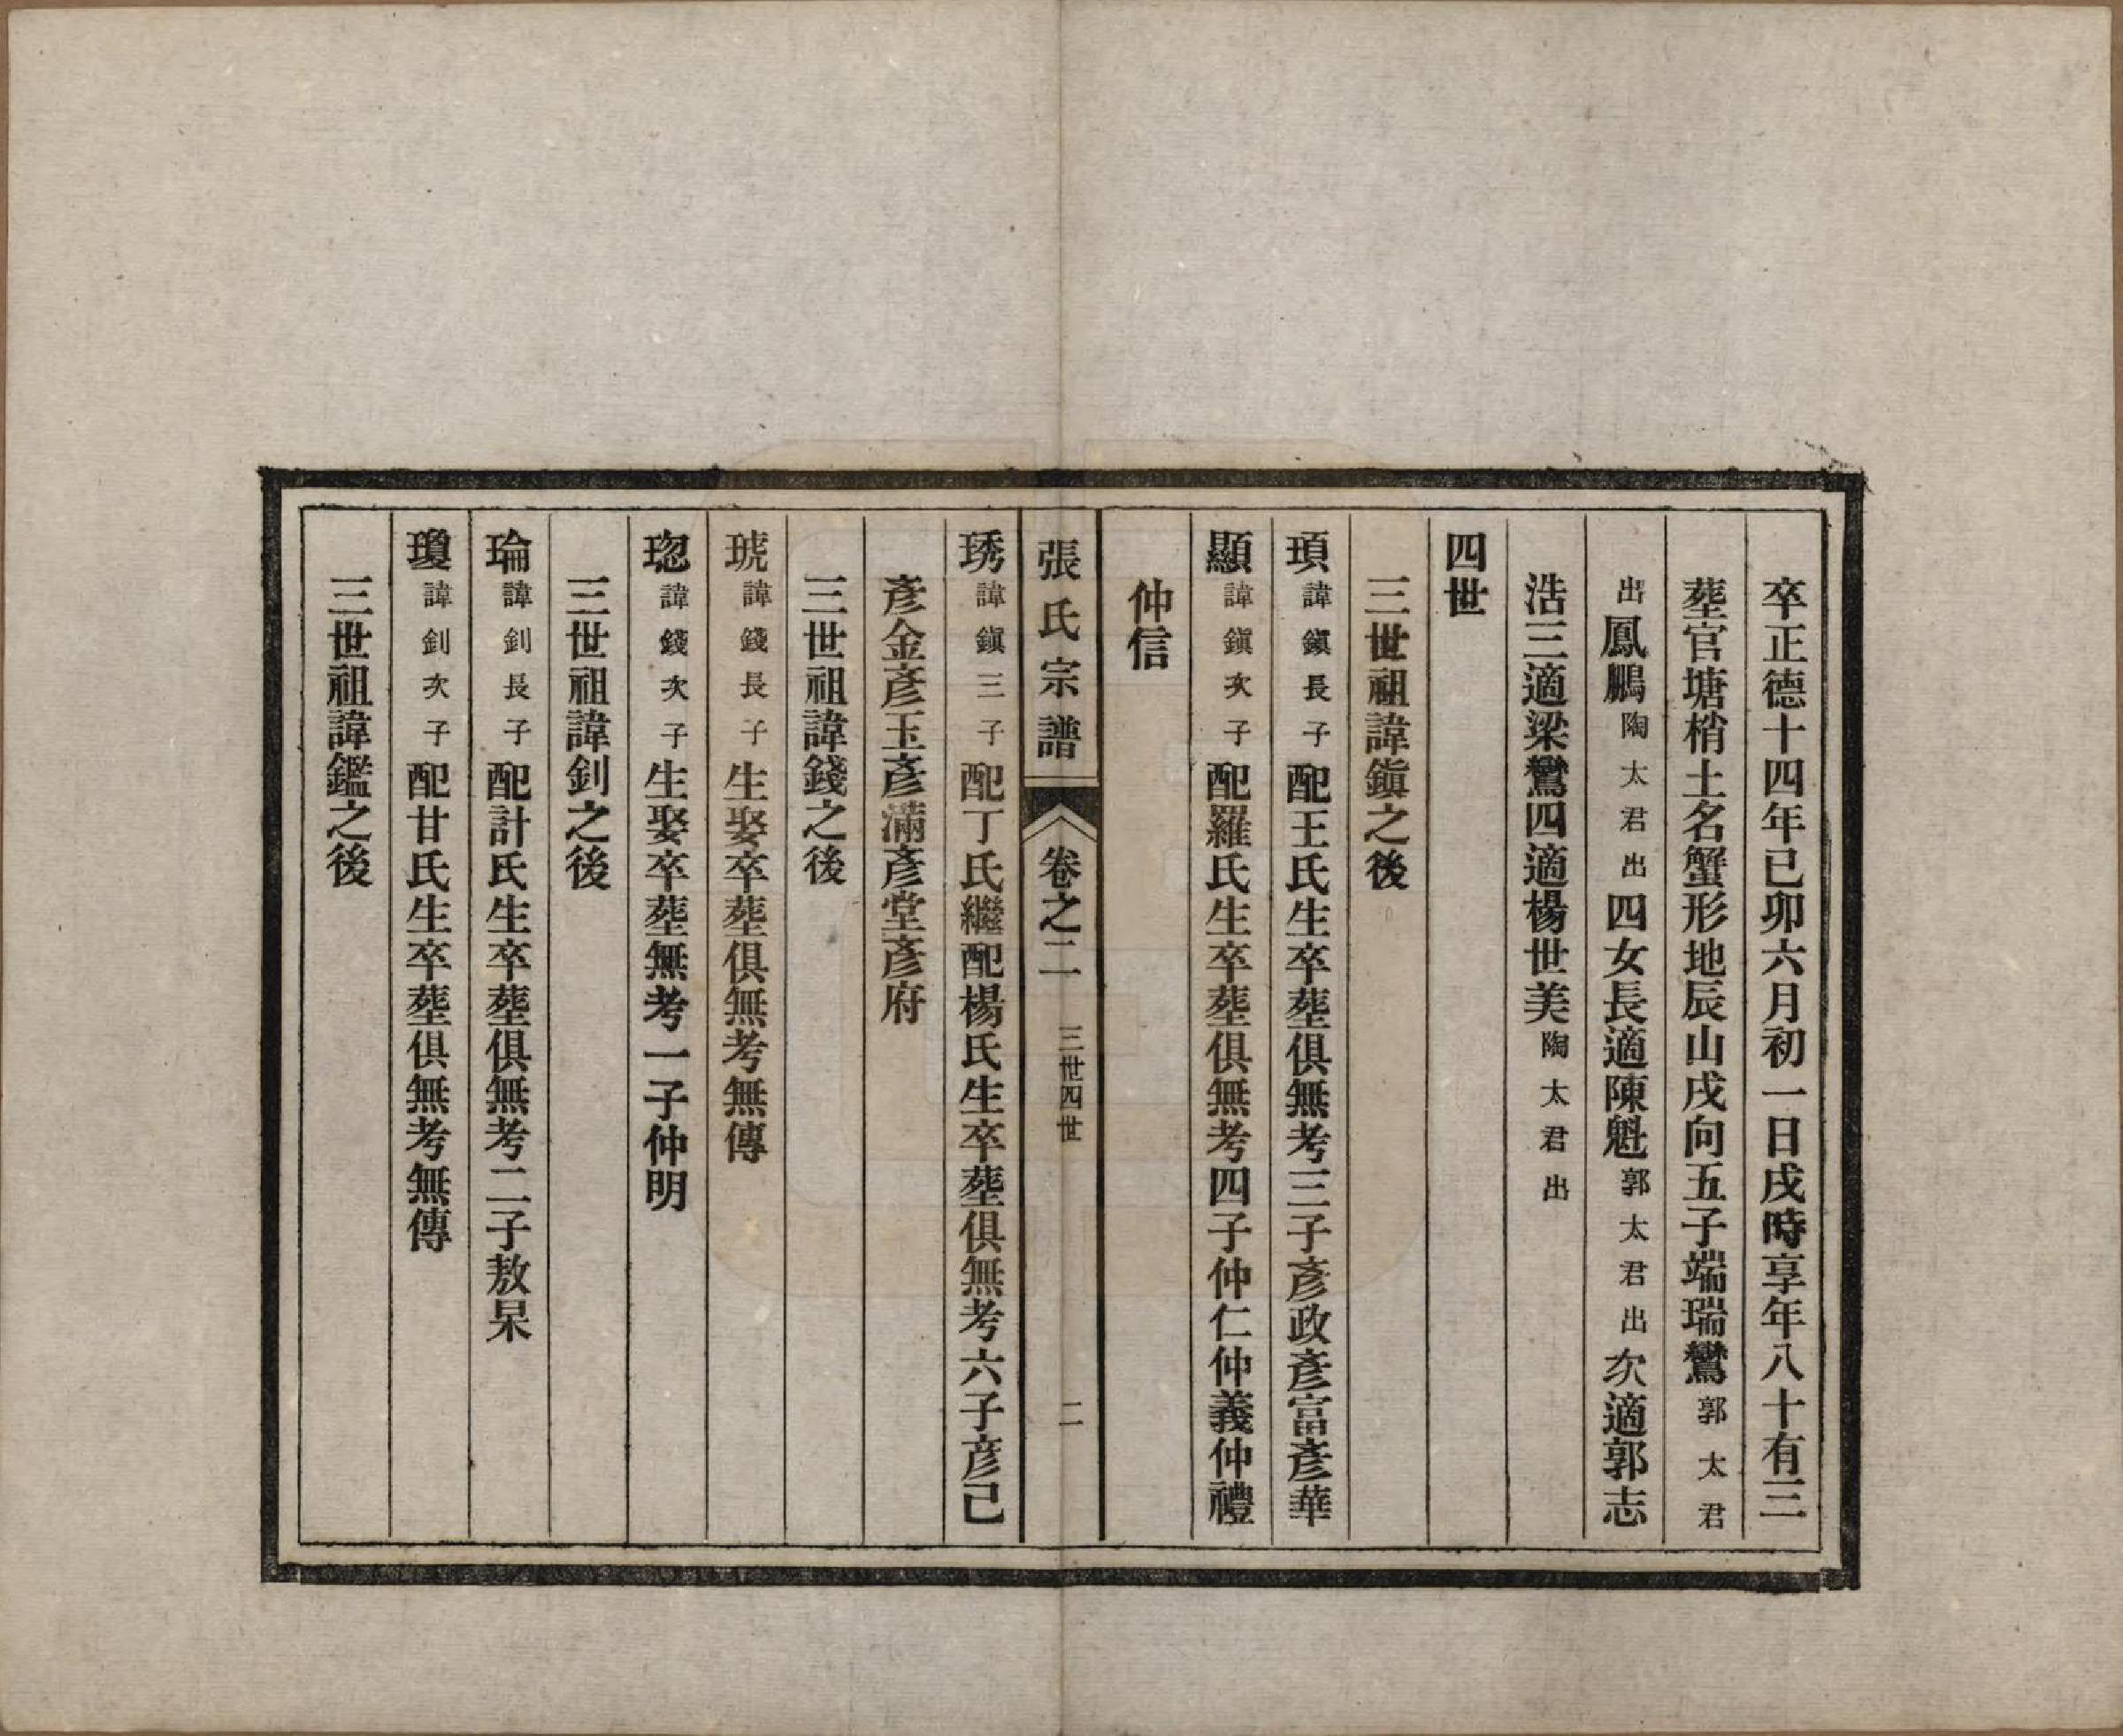 卒正德十四年已卯六月初一日戌時享年八十有三
葬官塘梢土名蟹形地辰山戌向五子端瑞鸞郭太君
出鳳鵬陶太君出四女長適陳魁郭太君出次適郭志
浩三適梁鸞四適楊世美陶太君出
四世
三世祖諱鎭之後
頊諱鎭長子配王氏生卒葬俱無考三子彥政彥富彥華
顯諱鎭次子配羅氏生卒葬俱無考四子仲仁仲義仲禮
仲信
張氏宗譜 卷之二 三世四世 二
琇諱鎭三子配丁氏繼配楊氏生卒葬俱無考六子彥己
彥金彥玉彥滿彥堂彥府
三世祖諱錢之後
琥諱錢長子生娶卒葬俱無考無傳
璁諱錢次子生娶卒葬無考一子仲明
三世祖諱釗之後
瑜諱釗長子配計氏生卒葬俱無考二子敖杲
瓊諱釗次子配甘氏生卒葬俱無考無傳
三世祖諱鑑之後